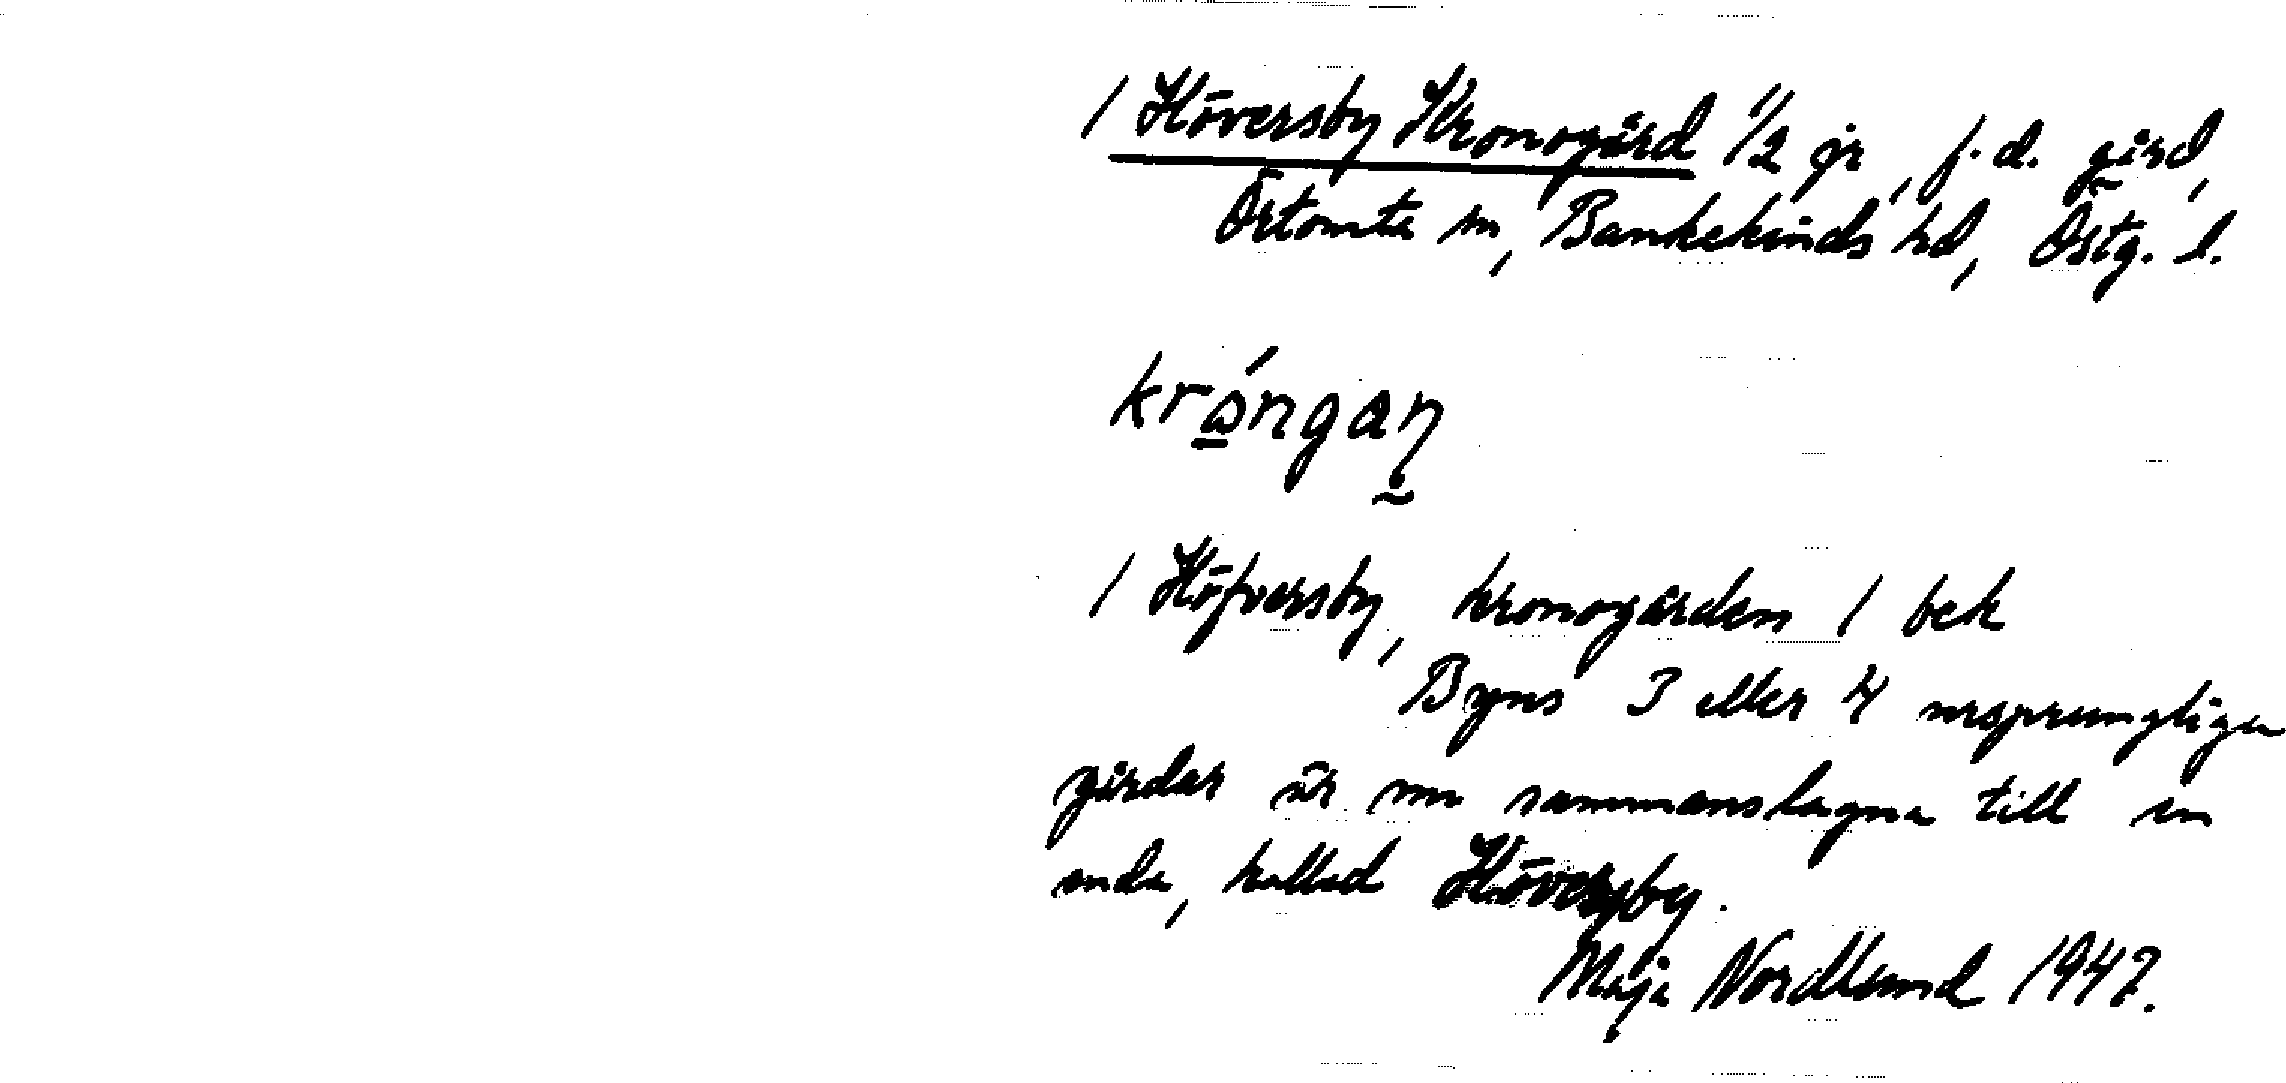 1 Höversby Kronogård 1/2 jr, f.d. gård,
Örtomta sn, Bankekinds hd, Östg. l.
1 Höfversby, Kronogården 1 bek
Byns 3 eller 4 ursprungliga
gårdar är nu sammanslagna till en
enda, kallad Höversby.
Maja Nordlund 1947.